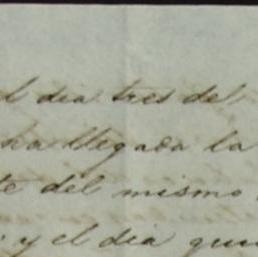 el dia tres del
ha llegada la
te del mismo
y el dia qui